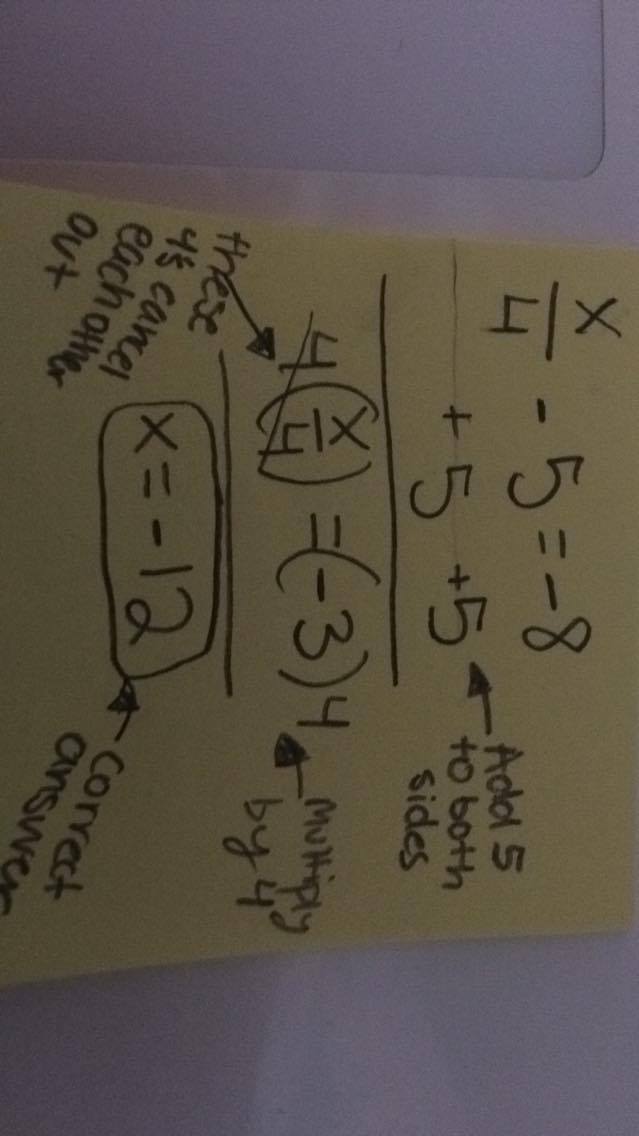 x/4 - 5 = -8
+ 5 +5
Add 5
to both
sides
4(x/4) = (-3)4
Multiply
by 4
these
4s cancel
each other
out
x = -12
correct
answer